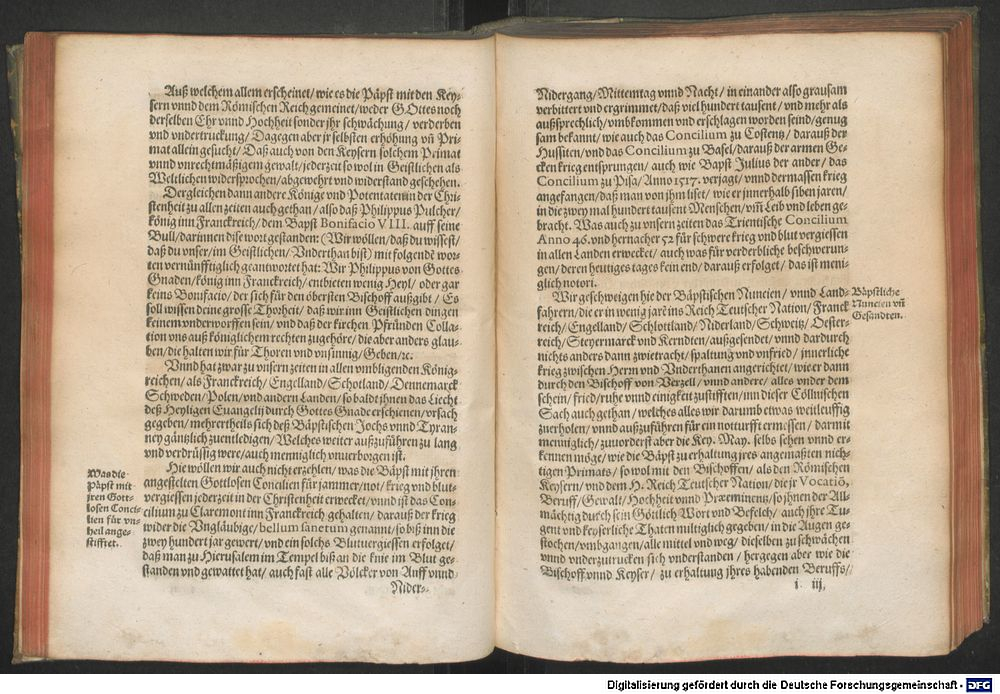 Auß welchem allem erscheinet/ wie es die Päpst mit den Key-
sern vnnd dem Römischen Reich gemeinet/ weder GOttes noch
derselben Ehr vnnd Hochheit sonder jhr schwächung/ verderben
vnd vndertruckung/ Dagegen aber jr selbsten erhöhung vñ Pri-
mat allein gesucht/ Daß auch von den Keysern solchem Primat
vnnd vnrechtmäßigem gewalt/ jederzeit so wol in Geistlichen als
Weltlichen widersprochen/ abgewehrt vnd widerstand geschehen.
Dergleichen dann andere Könige vnd Potentaten in der Chri-
stenheit zu allen zeiten auch gethan/ also daß Philippus Pulcher/
könig inn Franckreich/ dem Bapst Bonifacio VIII. auff seine
Bull/ darinnen dise wort gestanden: (Wir wöllen/ daß du wissest/
daß du vnser/ im Geistlichen/ Vnderthan bist) mit folgendē wor-
ten vernünfftiglich geantwortet hat: Wir Philippus von Gottes
Gnaden/ könig inn Franckreich/ entbieten wenig Heyl/ oder gar
keins Bonifacio/ der sich für den öbersten Bischoff außgibt/ Es
soll wissen deine grosse Thorheit/ daß wir inn Geistlichen dingen
keinem vnderworffen sein/ vnd daß der kirchen Pfründen Colla-
tion vns auß königlichem rechten zugehöre/ die aber anders glau-
ben/ die halten wir für Thoren vnd vnsinnig/ Geben/ ꝛc.
Vnnd hat zwar zu vnsern zeiten in allen vmbligenden König-
reichen/ als Franckreich/ Engelland/ Schotland/ Dennemarck
Schweden/ Polen/ vnd andern Landen/ so baldt jhnen das Liecht
deß Heyligen Euangelij durch Gottes Gnad erschienen/ vrsach
gegeben/ mehrertheils sich deß Bäpstischen Jochs vnnd Tyran-
ney gäntzlich zu entledigen/ Welches weiter außzuführen zu lang
vnd verdrüssig were/ auch menniglich vnuerborgen ist.
Was die
Päpst mit
jren Gott-
losen Conci-
lien für vn-
heil ange-
stifftet.
Hie wöllen wir auch nicht erzehlen/ was die Bäpst mit jhren
angestelten Gottlosen Concilien für jammer/ not/ krieg vnd blut-
vergiessen jederzeit in der Christenheit erwecket/ vnnd ist das Con-
cilium zu Claremont inn Franckreich gehalten/ darauß der krieg
wider die Vngläubige/ bellum sanctum genannt/ so biß inn die
zwey hundert jar gewert/ vnd ein solchs Blutuergiessen erfolget/
daß man zu Hierusalem im Tempel biß an die knie im Blut ge-
standen vnd gewattet hat/ auch fast alle Völcker von Auff vnnd
Nider-
Nidergang/ Mittemtag vnnd Nacht/ in einander also grausam
verbittert vnd ergrimmet/ daß viel hundert tausent/ vnd mehr als
außsprechlich/ vmbkommen vnd erschlagen worden seind/ genug
sam bekannt/ wie auch das Concilium zu Costentz/ darauß der
Hussiten/ vnd das Concilium zu Basel/ darauß der armen Ge-
cken krieg entsprungen/ auch wie Bapst Julius der ander/ das
Concilium zu Pisa/ Anno 1517. verjagt/ vnnd dermassen krieg
angefangen/ daß man von jhm liset/ wie er innerhalb siben jaren/
in die zwey mal hundert tausent Menschen/ vm̃ Leib vnd leben ge-
bracht. Was auch zu vnsern zeiten das Trientische Concilium
Anno 46. vnd hernacher 52 für schwere krieg vnd blut vergiessen
in allen Landen erweckt/ auch was für verderbliche beschwerun-
gen/ deren heutiges tages kein end/ darauß erfolget/ das ist meni-
glich notori.
Wir geschweigen hie der Bäpstischen Nuncien/ vnnd Land-
fahrern/ die er in wenig jarē ins Reich Teutscher Nation/ Franck
reich/ Engelland/ Schlottland/ Niderland/ Schweitz/ Oester-
reich/ Steyermarck vnd Kerndten/ außgesendet/ vnnd dardurch
nichts anders dann zwietracht/ spaltung vnd vnfried/ jnnerliche
krieg zwischen Herrn vnd Vnderthanen angerichtet/ wie er dann
durch den Bischoff von Verzell/ vnnd andere/ alles vnder dem
schein/ fried/ ruhe vnnd einigkeit zustifften/ inn dieser Cöllnischen
Sach auch gethan/ welches alles wir darumb etwas weitleuffig
zuerholen/ vnnd außzuführen für ein notturfft ermessen/ darmit
menniglich/ zuuorderst aber die Key. May. selbs sehen vnnd er-
kennen möge/ wie die Bäpst zu erhaltung jres angemaßten nich-
tigen Primats/ so wol mit den Bischoffen/ als den Römischen
Keysern/ vnd dem H. Reich Teutscher Nation/ die jr Vocatiō,
Beruff/ Gewalt/ Hochheit vnnd Præeminentz/ so jhnen der All-
mächtig durch sein Göttlich Wort vnd Befelch/ auch jhre Tu-
gent vnd keyserliche Thaten miltiglich gegeben/ in die Augen ge-
stochen/ vmbgangen/ alle mittel vnd weg/ dieselben zu schwächen
vnnd vnderzutrucken sich vnderstanden/ hergegen aber wie die
Bischoff vnnd Keyser/ zu erhaltung jhres habenden Beruffs/
i iij,
Bäpstliche
Nuncien vñ
Gesandten.
Digitalisierung gefördert durch die Deutsche Forschungsgemeinschaft - DFG